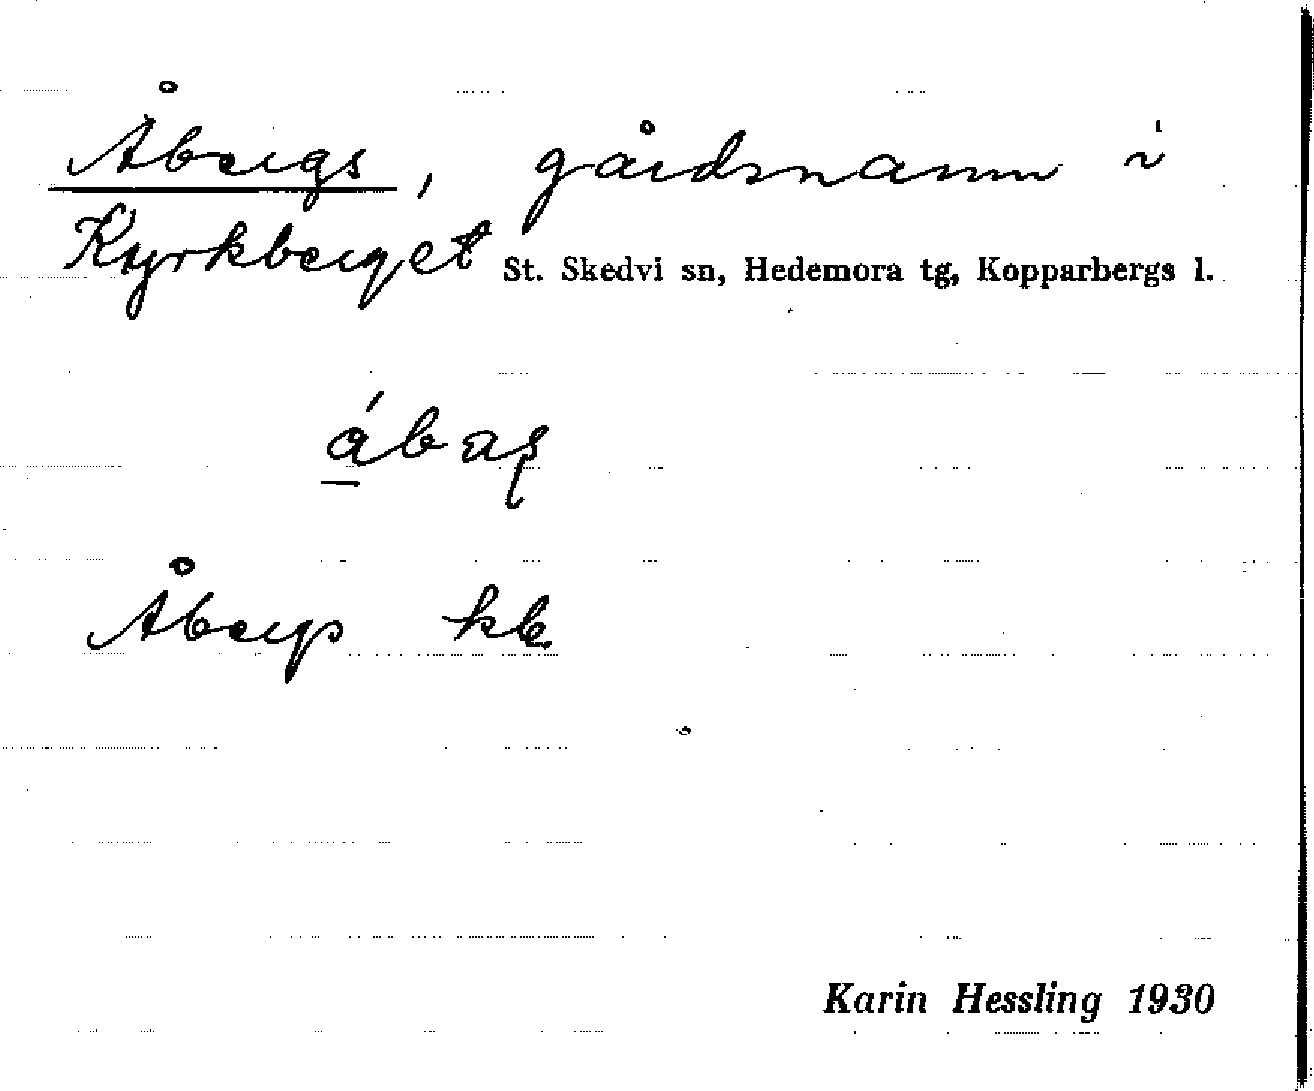 Åbergs, gårdsnamn i
Kyrkberget St. Skedvi sn, Hedemora tg, Kopparbergs l.
Åbergs kb.
Karin Hessling 1930